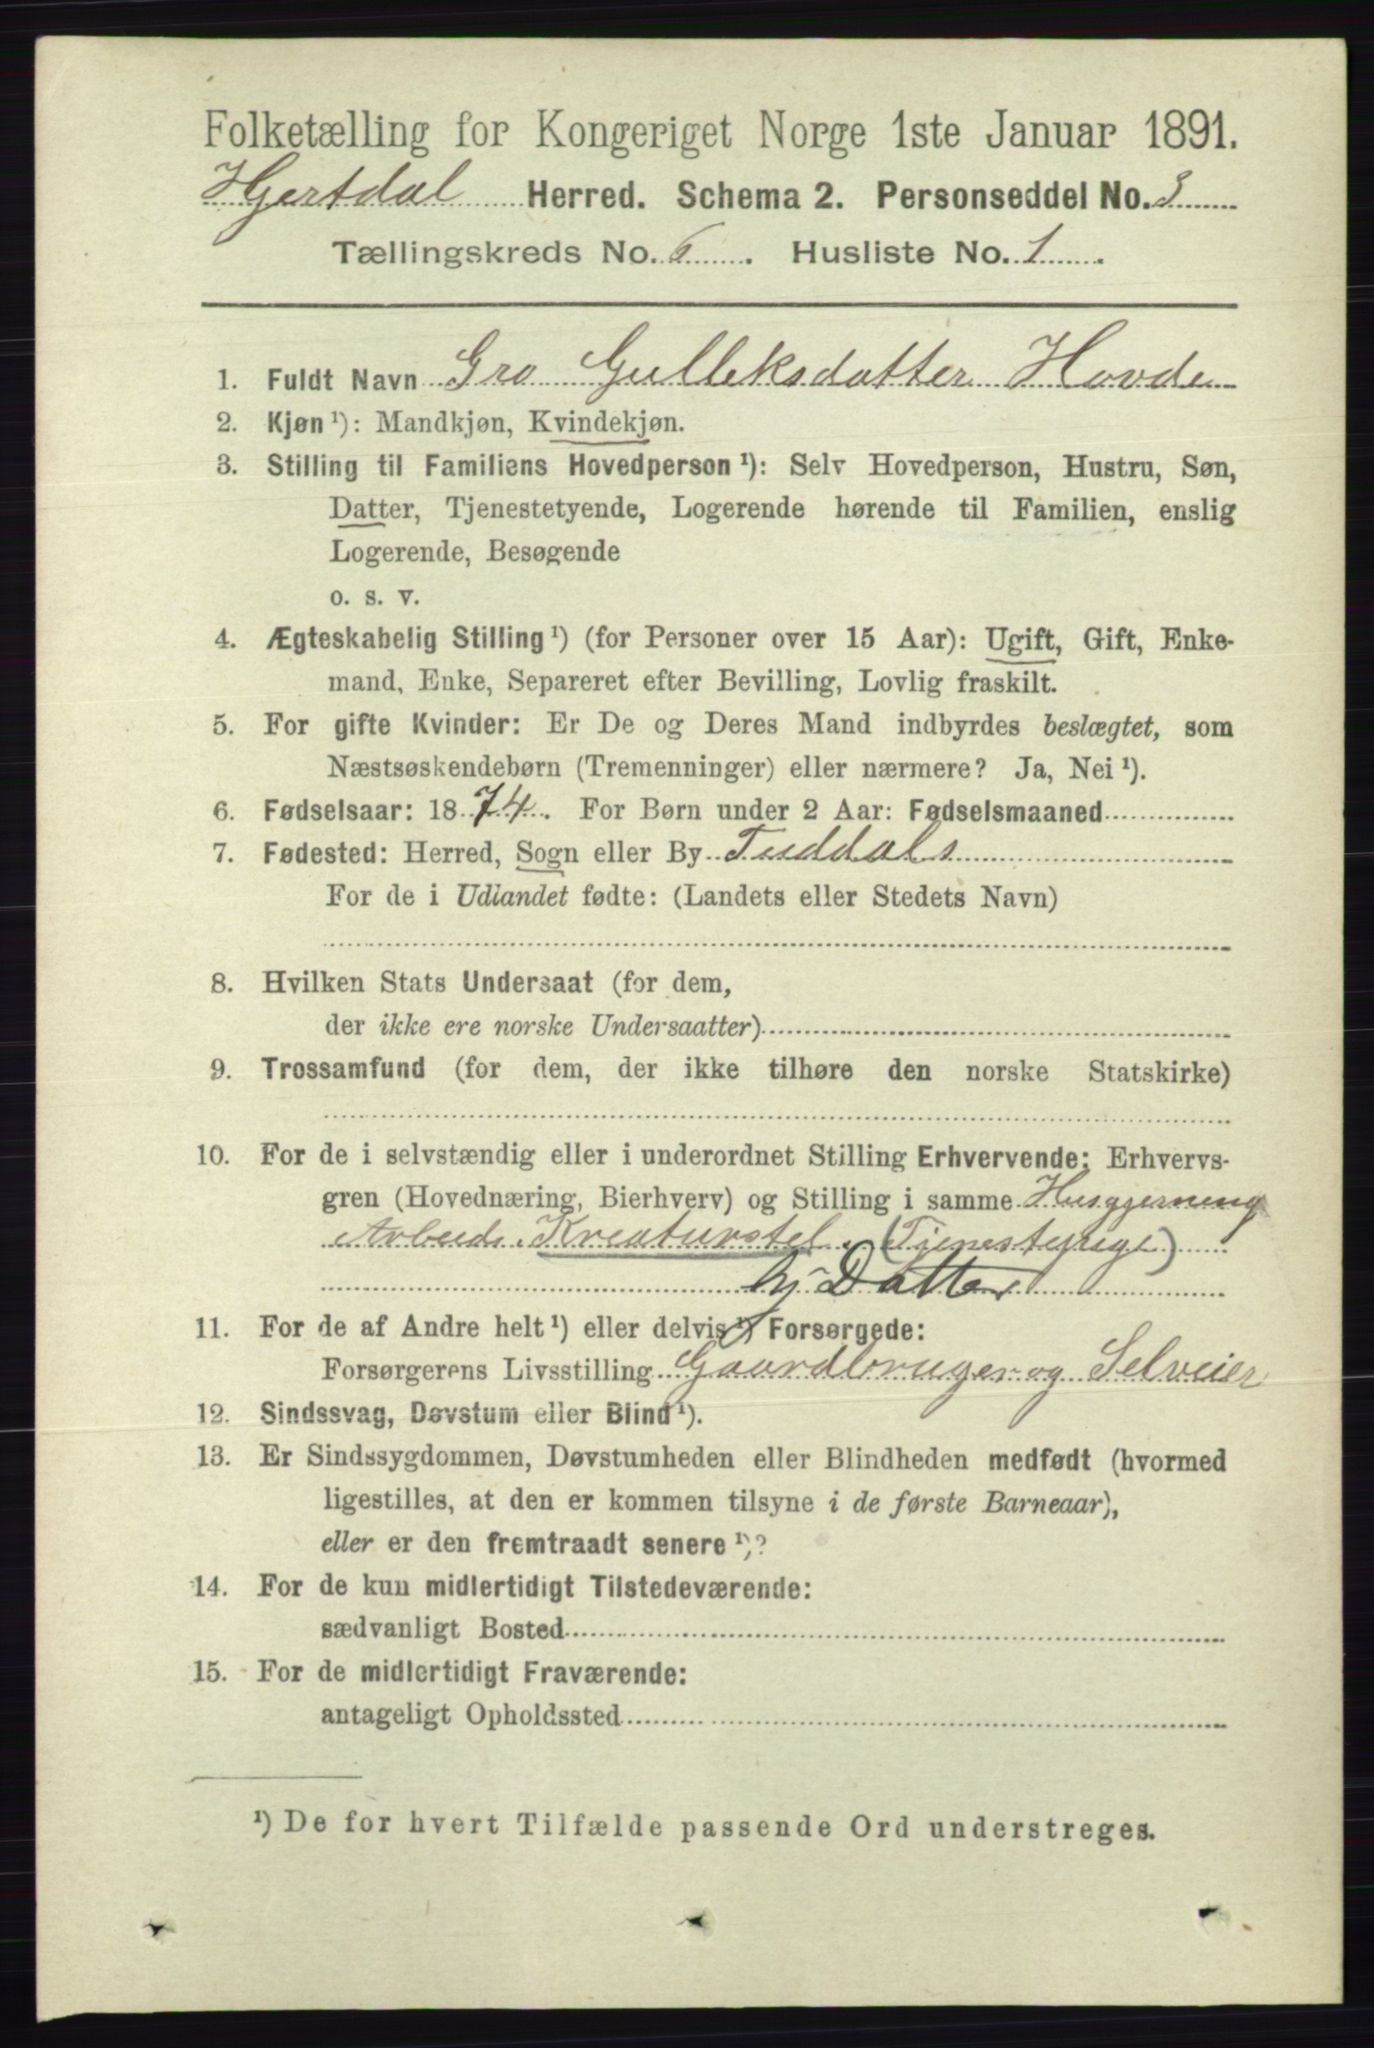 Folketælling for Kongeriget Norge 1ste Januar 1891.
Hjertdal Herred. Schema 2. Personseddel No. 3
Tællingskreds No. 6. Husliste No. 1.
1. Fuldt Navn Gro Gulleksdatter Hovde
2. Kjøn ¹): Mandkjøn, Kvindekjøn.
3. Stilling til Familiens Hovedperson ¹): Selv Hovedperson, Hustru, Søn,
Datter, Tjenestetyende, Logerende hørende til Familien, enslig
Logerende, Besøgende
o. s. v.
4. Ægteskabelig Stilling ¹) (for Personer over 15 Aar): Ugift, Gift, Enke-
mand, Enke, Separeret efter Bevilling, Lovlig fraskilt.
5. For gifte Kvinder: Er De og Deres Mand indbyrdes beslægtet, som
Næstsøskendebørn (Tremenninger) eller nærmere? Ja, Nei ¹).
6. Fødselsaar: 1874. For Børn under 2 Aar: Fødselsmaaned
7. Fødested: Herred, Sogn eller By Tuddals
For de i Udlandet fødte: (Landets eller Stedets Navn)
8. Hvilken Stats Undersaat (for dem,
der ikke ere norske Undersaatter)
9. Trossamfund (for dem, der ikke tilhøre den norske Statskirke)
10. For de i selvstændig eller i underordnet Stilling Erhvervende: Erhvervs-
gren (Hovednæring, Bierhverv) og Stilling i samme Husgjerning
Arbeide. Kreaturstel. (Tjenestepige)
hj Datter
11. For de af Andre helt ¹) eller delvis ¹) Forsørgede:
Forsørgerens Livsstilling Gaardbruger og Selveier
12. Sindssvag, Døvstum eller Blind ¹).
13. Er Sindssygdommen, Døvstumheden eller Blindheden medfødt (hvormed
ligestilles, at den er kommen tilsyne i de første Barneaar),
eller er den fremtraadt senere ¹)?
14. For de kun midlertidigt Tilstedeværende:
sædvanligt Bosted
15. For de midlertidigt Fraværende:
antageligt Opholdssted
¹) De for hvert Tilfælde passende Ord understreges.